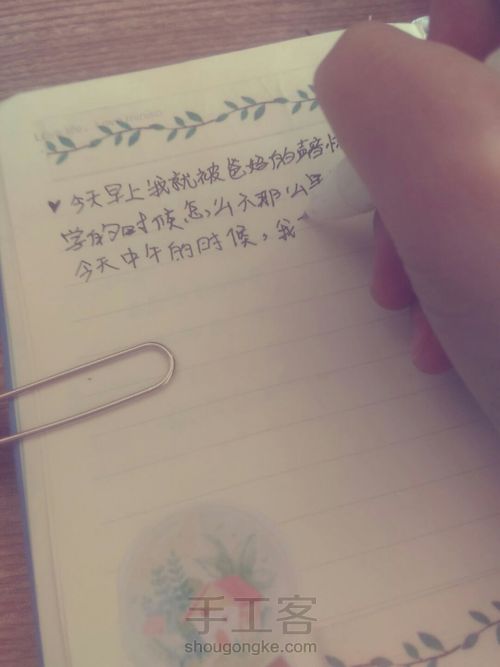 ♥今天早上我就被爸妈的声音
学的时候怎么不那么早
今天中午的时候,我
手工客
shougongke.com